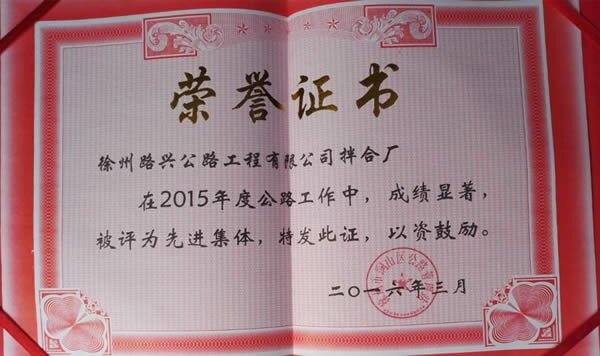 荣誉证书
徐州路兴公路工程有限公司拌合厂
在2015年度公路工作中，成绩显著，
被评为先进集体，特发此证，以资鼓励。
二〇一六年三月